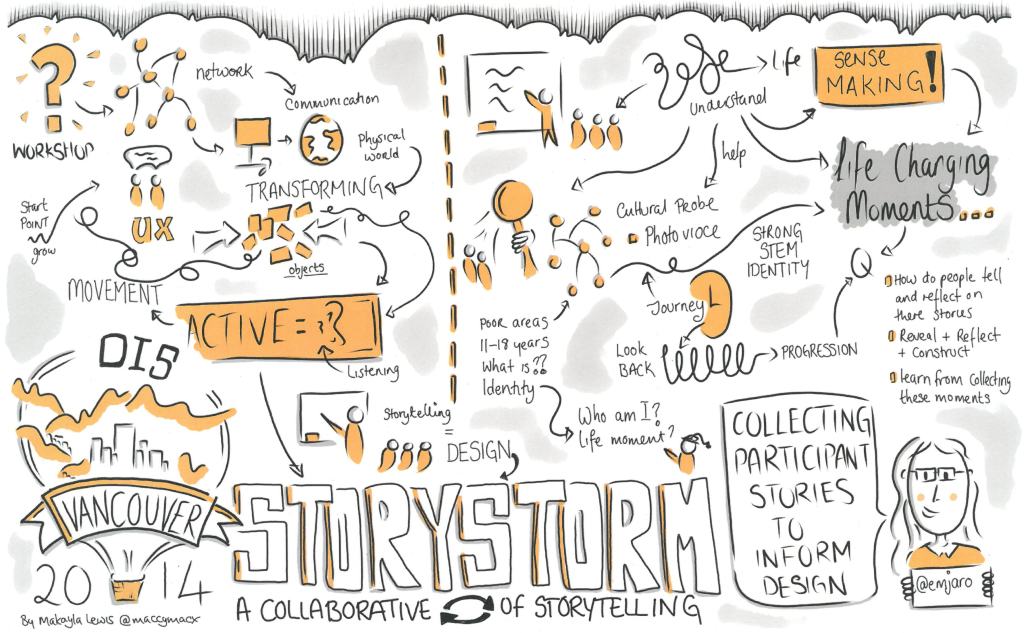 WORKSHOP
network
Communication
Physical
world
TRANSFORMING
Start
POINT
grow
UX
objects
MOVEMENT
ACTIVE = ??
Listening
DIS
VANCOUVER
2014
By Makayla Lewis @maccymacx
Storytelling
=
DESIGN
STORYSTORM
A COLLABORATIVE OF STORYTELLING
life
Understand
SENSE
MAKING!
help
life Changing
Moments...
Cultural Probe
Photovioce
STRONG
STEM
IDENTITY
Journey
Look
BACK
PROGRESSION
Q
Poor areas
11-18 years
What is??
Identity
Who am I?
life moment?
How do people tell
and reflect on
there stories
Reveal + Reflect
+ Construct
learn from collecting
these moments
COLLECTING
PARTICIPANT
STORIES
TO
INFORM
DESIGN
@emjaro